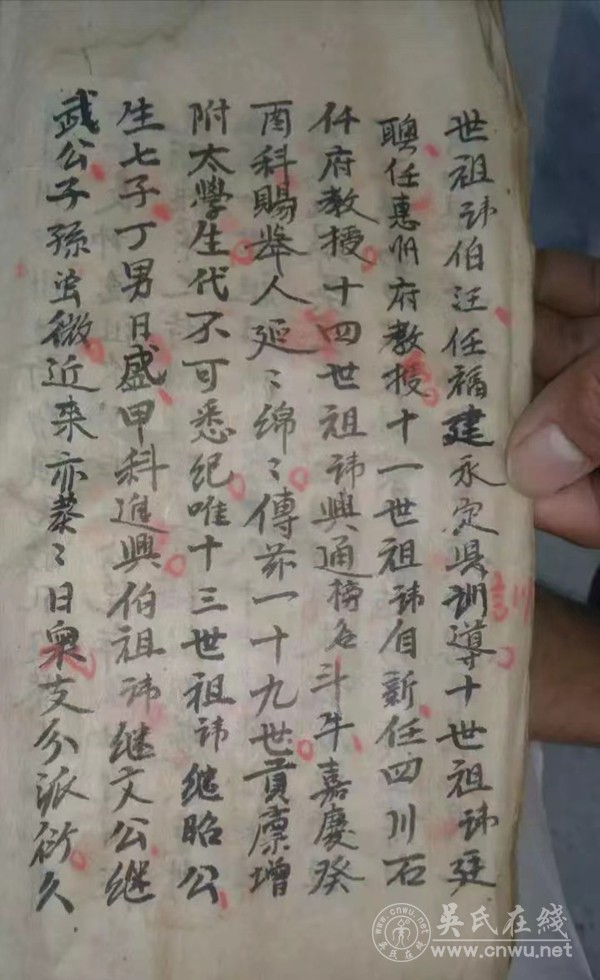 世祖讳伯汪任福建永定县训導十世祖讳廷
訓
聰任惠州府教授十一世祖讳自新任四川石
仟府教授十四世祖讳興通榜名斗牛嘉慶癸
酉科賜举人延〻绵〻傳茲一十九世貢廪增
附太學生代不可悉纪唯十三世祖讳继昭公
生七子丁男日盛甲科進興伯祖讳继文公继
武公子孫虽微近来亦蓁〻日衆支分派衍久
吳氏在綫
www.cnwu.net